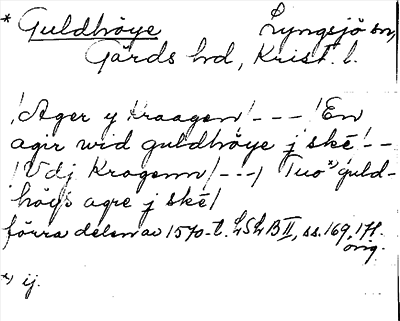 * Guldhöye Lyngsjö sn,
Gärds hd, Krist. l.
/Ager y Kraagen/ - - - /En
agir wid guldhöye j ské/ - -
/Vdj Kragenn/ - - -/ Tuo *) guld-
höys agre j ské/
förra delen av 1570-t. LSLB II, ss. 169, 171.
orig.
*) ij.